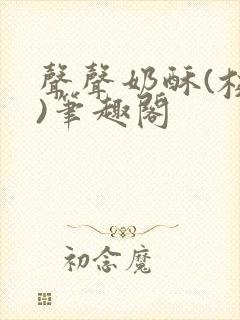 聲聲奶酥(校
)筆趣閣
初念魔